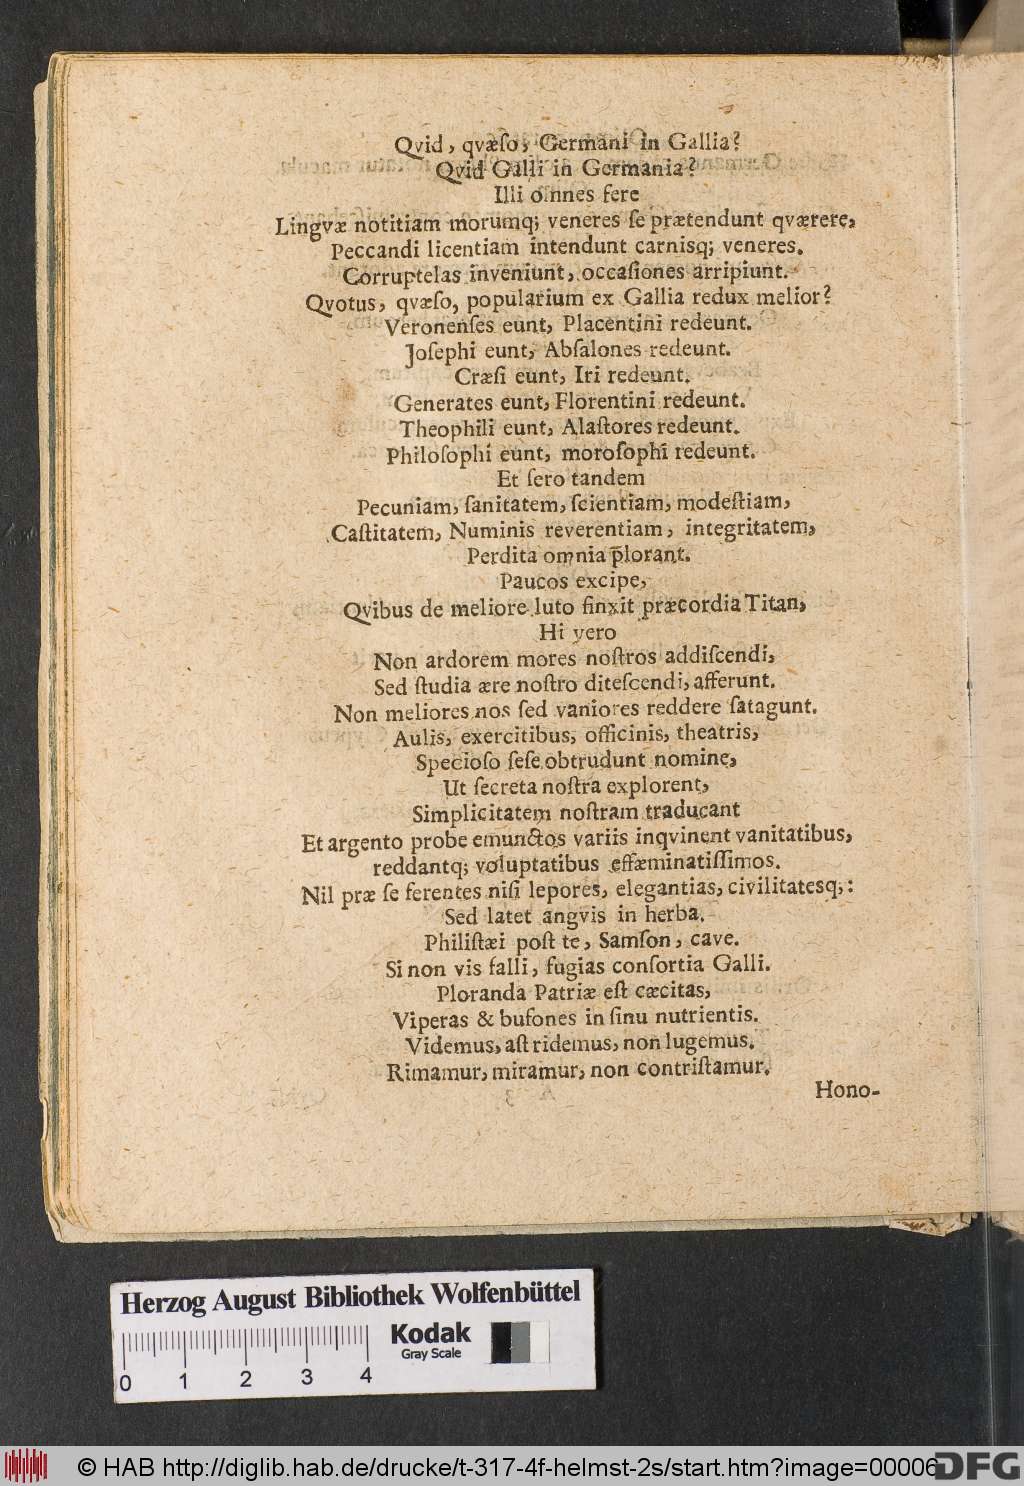 Qvid, qvæſo, Germani in Gallia?
Qvid Galli in Germania?
Illi omnes fere
Lingvæ notitiam morumq; veneres ſe prætendunt qværere,
Peccandi licentiam intendunt carnisq; veneres.
Corruptelas inveniunt, occaſiones arripiunt.
Qvotus, qvæſo, popularium ex Gallia redux melior?
Veronenſes eunt, Placentini redeunt.
Joſephi eunt, Abſalones redeunt.
Cræſi eunt, Iri redeunt.
Generates eunt, Florentini redeunt.
Theophili eunt, Alaſtores redeunt.
Philoſophi eunt, moroſophi redeunt.
Et ſero tandem
Pecuniam, ſanitatem, ſcientiam, modeſtiam,
Caſtitatem, Numinis reverentiam, integritatem,
Perdita omnia p̄lorant.
Paucos excipe,
Qvibus de meliore luto finxit præcordia Titan,
Hi vero
Non ardorem mores noſtros addiſcendi,
Sed ſtudia ære noſtro diteſcendi, afferunt.
Non meliores nos ſed vaniores reddere ſatagunt.
Aulis, exercitibus, officinis, theatris,
Specioſo ſeſe obtrudunt nomine,
Ut ſecreta noſtra explorent,
Simplicitatem noſtram traducant
Et argento probe emunctos variis inqvinent vanitatibus,
reddantq; voluptatibus effæminatiſſimos.
Nil præ ſe ferentes niſi lepores, elegantias, civilitatesq;:
Sed latet angvis in herba.
Philiſtæi poſt te, Samſon, cave.
Si non vis falli, fugias conſortia Galli.
Ploranda Patriæ eſt cæcitas,
Viperas & bufones in ſinu nutrientis.
Videmus, aſt ridemus, non lugemus.
Rimamur, miramur, non contriſtamur.
Hono-
Herzog August Bibliothek Wolfenbüttel
Kodak
Gray Scale
0 1 2 3 4
© HAB http://diglib.hab.de/drucke/t-317-4f-helmst-2s/start.htm?image=00006
DFG